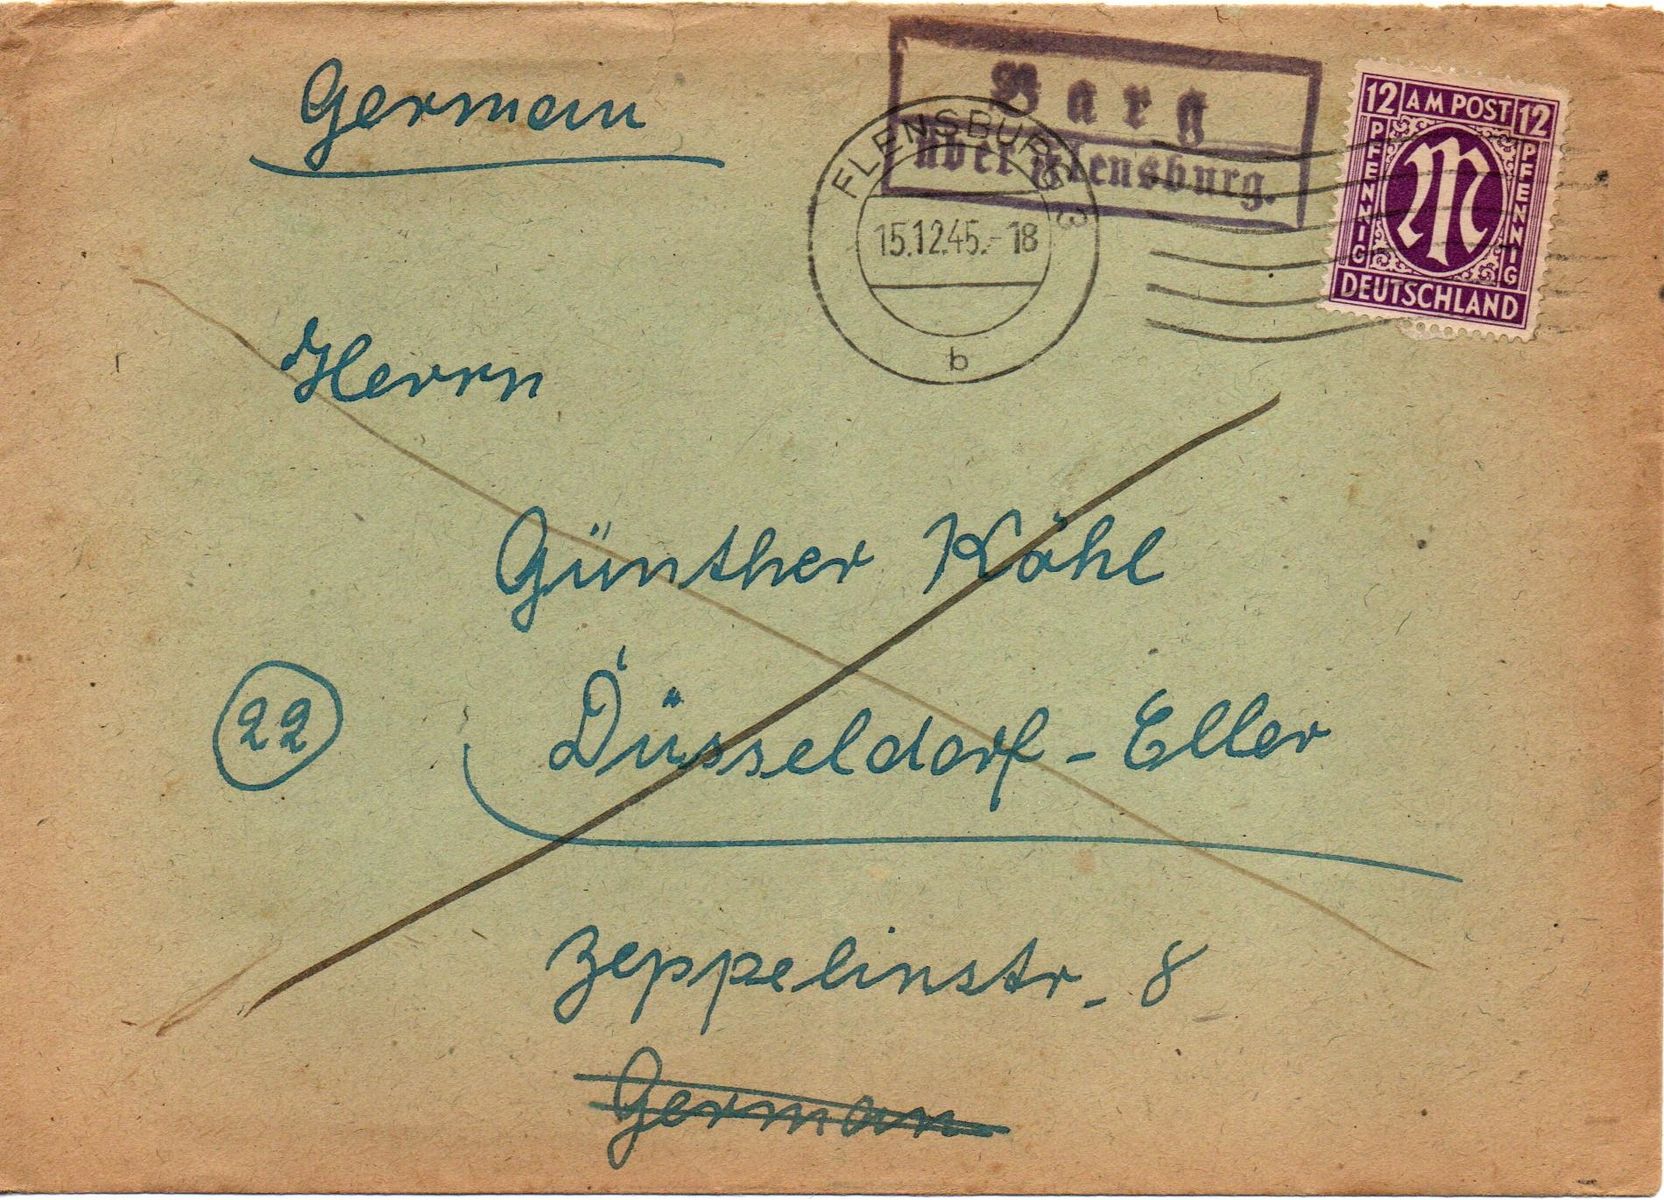 German
Barg
über Flensburg.
FLENSBURG 3
15.12.45.-18
b
12 AM POST 12
PFENNIG
PFENNIG
DEUTSCHLAND
Herrn
Günther Köhl
22
Düsseldorf-Eller
Zeppelinstr. 8
German